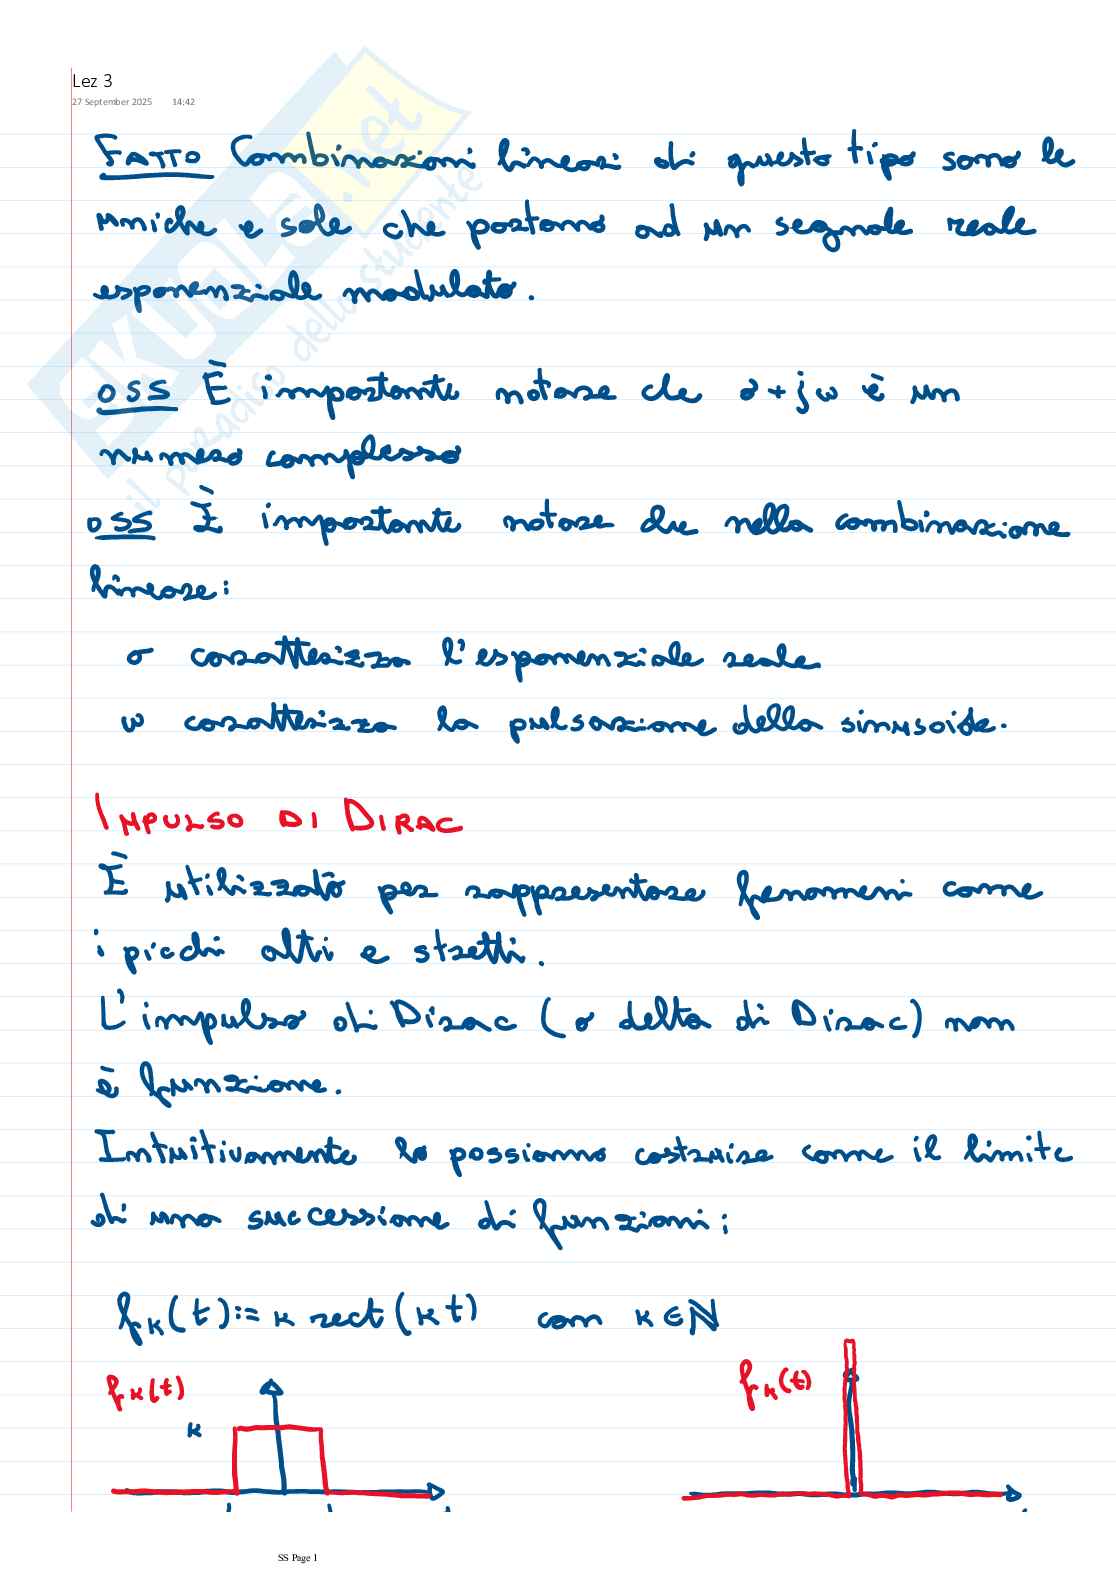 Lez 3
27 September 2025 14:42
FATTO Combinazioni lineari di questo tipo sono le
uniche e sole che portano ad un segnale reale
esponenziale modulato.
OSS È importante notare che σ + jω è un
numero complesso
OSS È importante notare che nella combinazione
lineare:
σ caratterizza l'esponenziale reale
ω caratterizza la pulsazione della sinusoide.
IMPULSO DI DIRAC
È utilizzato per rappresentare fenomeni come
i picchi alti e stretti.
L'impulso di Dirac (o delta di Dirac) non
è funzione.
Intuitivamente lo possiamo costruire come il limite
di una successione di funzioni:
fκ(t):= κ rect(κt) con κ∈ℕ
fκ(t)
fκ(t)
κ
SKUOLA.net
il paradiso dello studente
SS Page 1